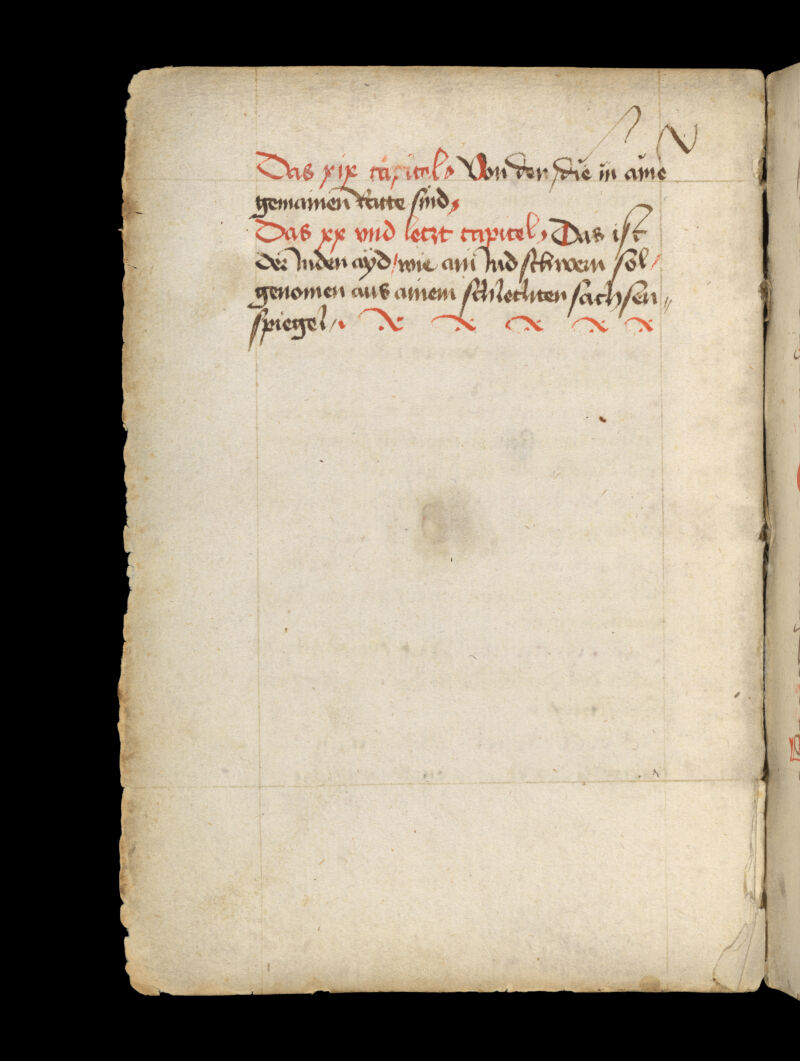 Das xix capitel, Von den, die in aine
gemainen Ratte sind,
Das xx vnd letzt capitel, Das ist
der Juden ayd/ wie ain Jud schwern sol/
genomen aus ainem schlechten sachsen„
spiegel/.